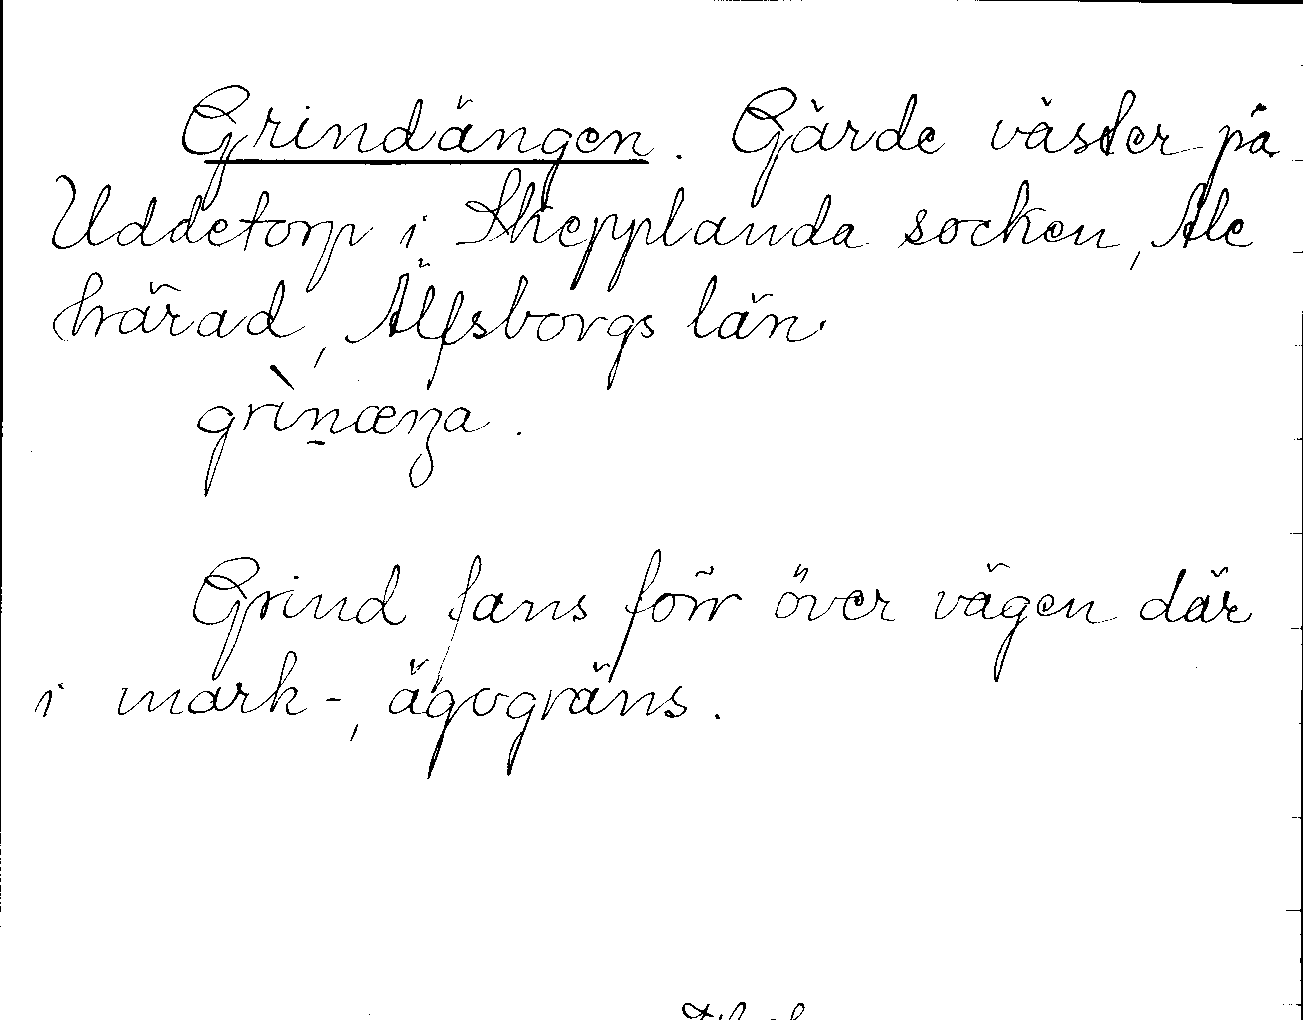 Grindängen. Gärde väster på
Uddetorp i Skepplanda socken, Ale
härad, Älfsborgs län.
grìn̠æŋa.
Grind fans förr över vägen där
i mark-, ägogräns.